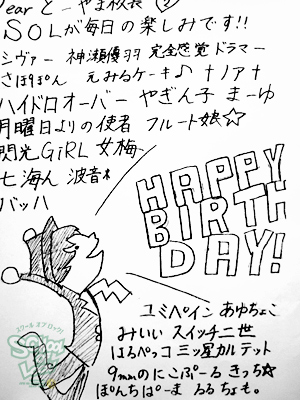 Dear とーやま校長②
SOLが毎日の楽しみです!!
シヴァー 神瀬優羽 完全感覚ドラマー
さほりぽん 元みるケーキ♪ ナノアナ
ハイドロオーバー やぎん子 まーゆ
月曜日よりの使者 フルート娘☆
閃光GiRL 女梅
七海ん 波音
バッハ
HAPPY
BIRTH
DAY!
ユミペイン あゆちょこ
みいい スイッチ二世
はるペッコ 三ッ星カルテット
9mmのにこぷーる きっち☆
ぽんちぱーま るるちょも。
スクール オブ ロック!